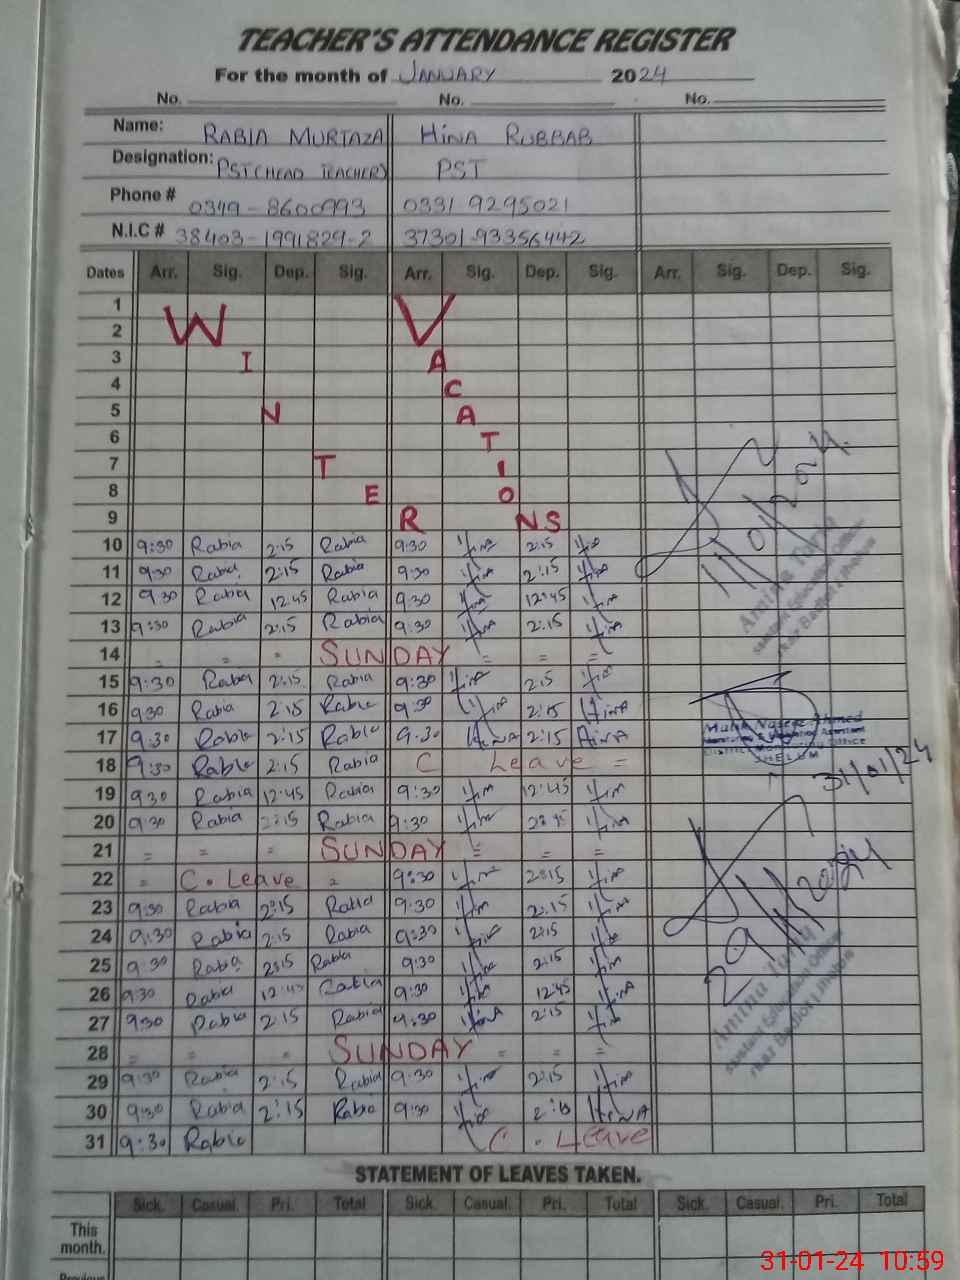 TEACHER'S ATTENDANCE REGISTER
For the month of JANUARY 2024
No. No. No.
Name: RABIA MURTAZA HINA RUBBAB
Designation: PST(HEAD TEACHER) PST
Phone # 0349-8600993 0331 9295021
N.I.C # 38403-1991829-2 37301-93356442
Dates Arr. Sig. Dep. Sig. Arr. Sig. Dep. Sig. Arr. Sig. Dep. Sig.
1 W V
2
3 I A
4 C
5 N A
6 T
7 T I
8 E O
9 R N S
10 9:30 Rabia 2:15 Rabia 9:30 Hina 2:15 Hina
11 9:30 Rabia 2:15 Rabia 9:30 Hina 2:15 Hina
12 9:30 Rabia 12:45 Rabia 9:30 Hina 12:45 Hina
13 9:30 Rabia 2:15 Rabia 9:30 Hina 2:15 Hina
14 = = = SUNDAY = = =
15 9:30 Rabia 2:15 Rabia 9:30 Hina 2:5 Hina
16 9:30 Rabia 2:15 Rabia 9:30 Hina 2:15 HinA
17 9:30 Rabia 2:15 Rabia 9:30 HinA 2:15 HinA
18 9:30 Rabia 2:15 Rabia C Leave =
19 9:30 Rabia 12:45 Rabia 9:30 Hina 12:45 Hina
20 9:30 Rabia 2:15 Rabia 9:30 Hina HinA
21 = = = SUNDAY = = =
22 = C. Leave = 9:30 Hina 2:15 Hina
23 9:30 Rabia 2:15 Rabia 9:30 Hina 2:15 Hina
24 9:30 Rabia 2:15 Rabia 9:30 Hina 2:15 Hina
25 9:30 Rabia 2:15 Rabia 9:30 Hina 2:15 Hina
26 9:30 Rabia 12:45 Rabia 9:30 Hina 12:45 HinA
27 9:30 Rabia 2:15 Rabia 9:30 HinA 2:15 Hina
28 = = = SUNDAY = = =
29 9:30 Rabia 2:15 Rabia 9:30 Hina 2:15 Hina
30 9:30 Rabia 2:15 Rabia 9:30 Hina HinA
31 9:30 Rabia C. Leave
Amina Tariq
Malik Naseer Ahmed
JHELUM
31/01/24
Amina Tariq
STATEMENT OF LEAVES TAKEN.
Sick. Casual. Pri. Total Sick. Casual. Pri. Total Sick. Casual. Pri. Total
This month.
Previous
31-01-24 10:59